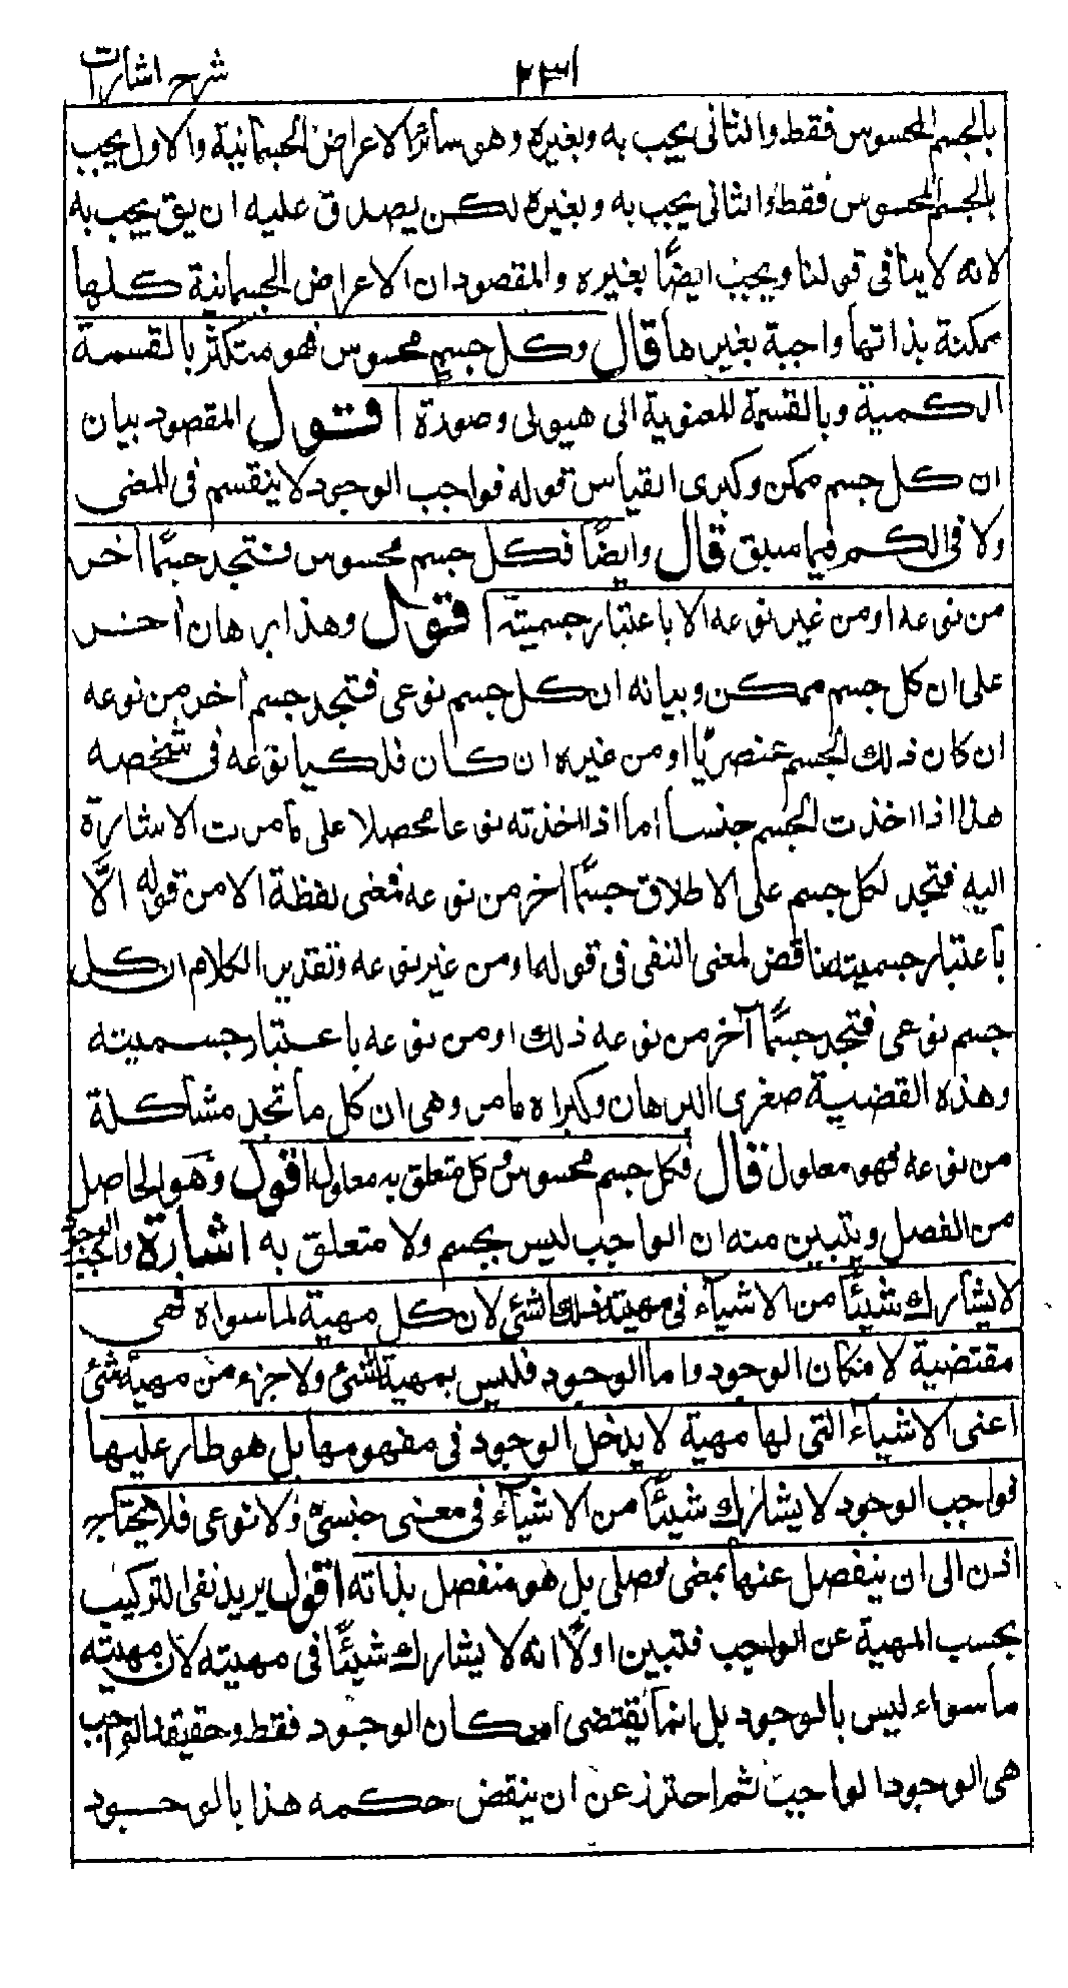 شرح اشارات
٢٣١
بالجسم المحسوس فقط والثانى يجب به وبغيره وهو سائر الاعراض الجسمانية والاول يجب
بالجسم المحسوس فقط والثانى يجب به وبغيره لكن يصدق عليه ان يق يجب به
لانه لا ينافى قولنا ويجب ايضًا بغيره والمقصود ان الاعراض الجسمانية كلها
ممكنة بذاتها واجبة بغيرها قال وكل جسم محسوس فهو متكثر بالقسمة
الكمية وبالقسمة المعنوية الى هيولى وصورة اقول المقصود بيان
ان كل جسم ممكن وكبرى القياس قوله فواجب الوجود لا ينقسم فى المعنى
ولا فى الكم فيما سبق قال وايضًا فكل جسم محسوس فتجد جسمًا آخر
من نوعه او من غير نوعه الا باعتبار جسميته اقول وهذا برهان آخر
على ان كل جسم ممكن وبيانه ان كل جسم نوعى فتجد جسم آخر من نوعه
ان كان ذلك الجسم عنصريًا او من غيره ان كان فلكيا نوعه فى شخصه
هذا اذا اخذت الجسم جنسا اما اذا اخذته نوعا محصلا على ما مرت الاشارة
اليه فتجد لكل جسم على الاطلاق جسمًا آخر من نوعه فمعنى لفظة الا من قوله الّا
باعتبار جسميته مناقض لمعنى النفى فى قوله او من غير نوعه وتقدير الكلام ان كل
جسم نوعى فتجد جسمًا آخر من نوعه ذلك او من نوعه باعتبار جسميته
وهذه القضية صغرى البرهان وكبراه ما مر وهى ان كل ما تجد مشاكلة
من نوعه فهو معلول قال فكل جسم محسوس وكل متعلق به معلول اقول وهو الحاصل
من الفصل ويتبين منه ان الواجب ليس بجسم ولا متعلق به اشارة واجب الوجود
لا يشارك شيئًا من الاشياء فى مهية ذلك الشئ لان كل مهية لما سواه فهى
مقتضية لامكان الوجود واما الوجود فليس بمهية لشئ ولا جزء من مهية شئ
اعنى الاشياء التى لها مهية لا يدخل الوجود فى مفهومها بل هو طار عليها
فواجب الوجود لا يشارك شيئًا من الاشياء فى معنى جنسى ولا نوعى فلا يحتاج
اذن الى ان ينفصل عنها بمعنى فصلى بل هو منفصل بذاته اقول يريد نفى التركيب
بحسب المهية عن الواجب فتبين اولًا انه لا يشارك شيئًا فى مهيته لان مهيته
ما سواه ليس بالوجود بل انما يقتضى امكان الوجود فقط وحقيقة الواجب
هى الوجود الواجب ثم احترز عن ان ينقض حكمه هذا بالوجود